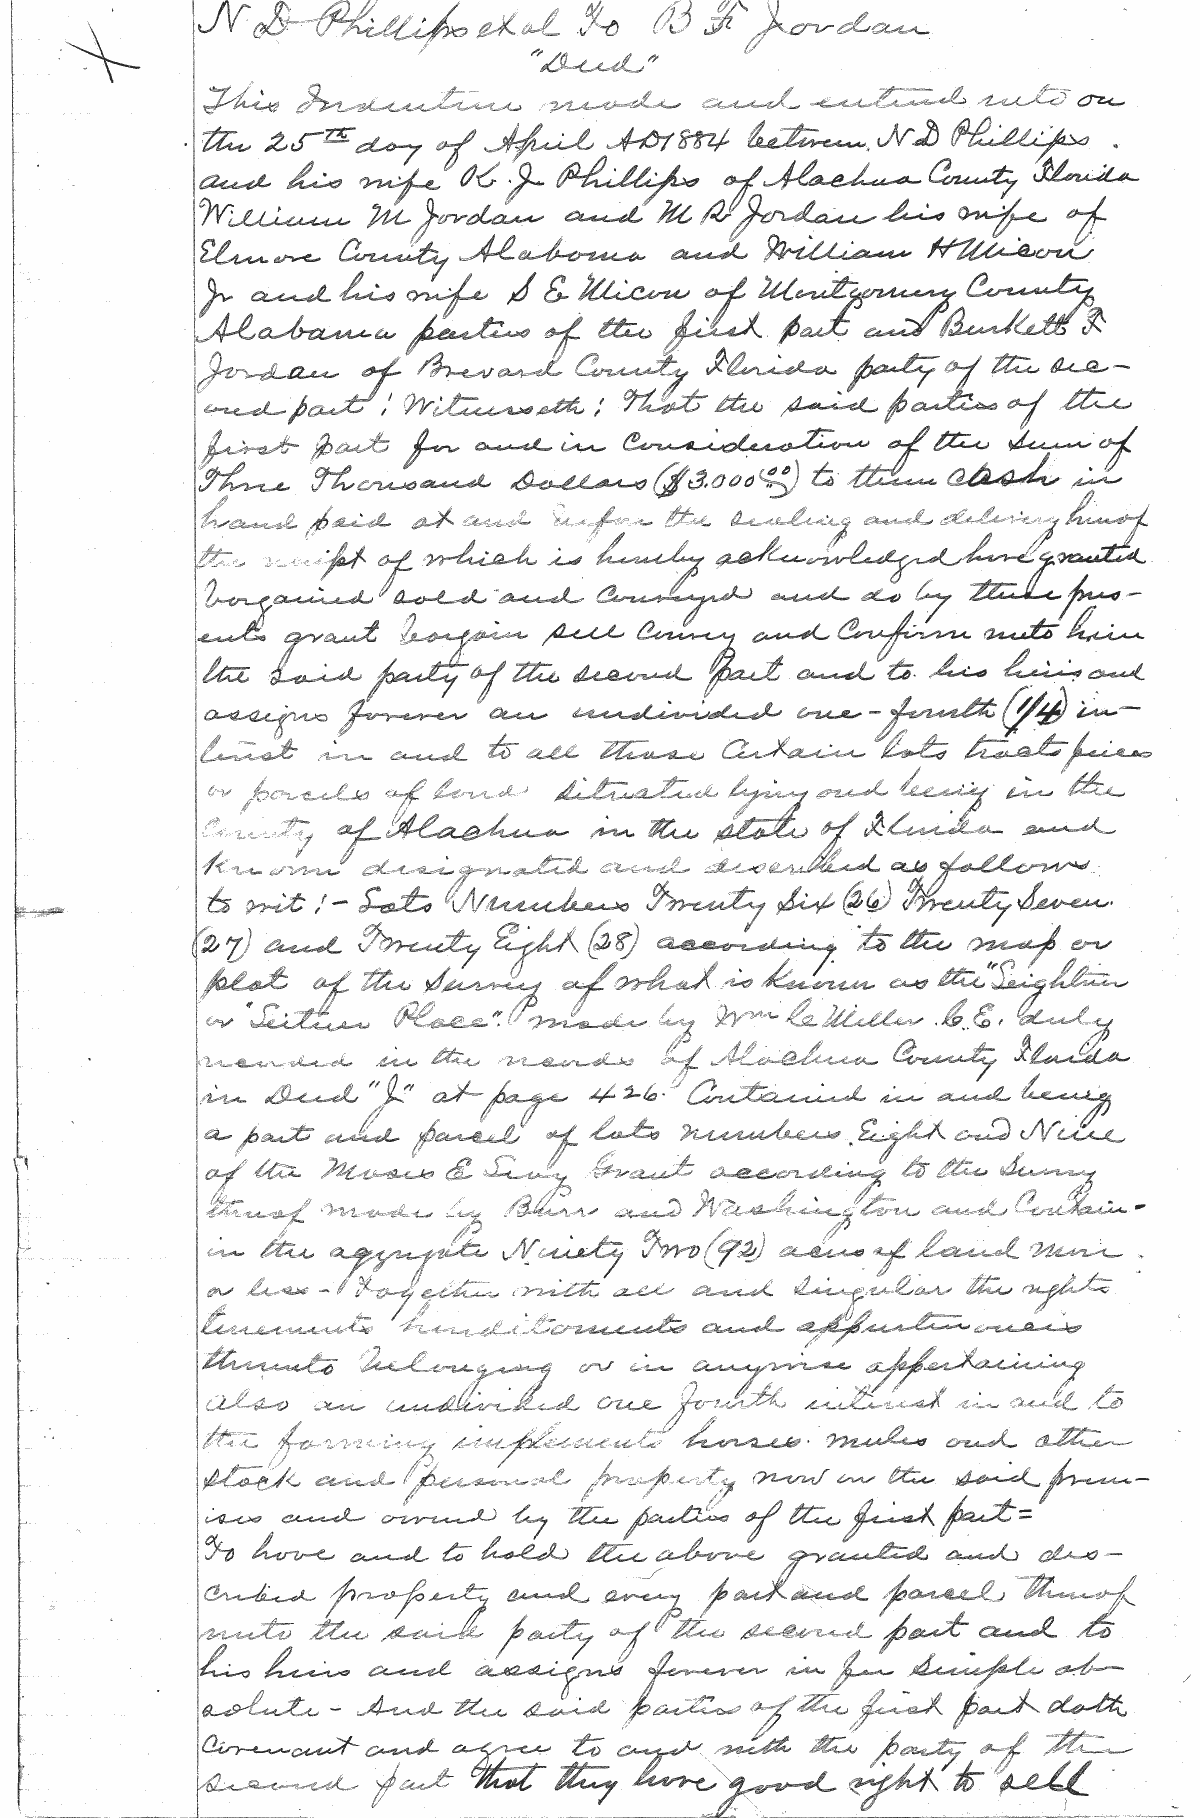 N D Phillips et al To B F Jordan
"Deed"
This Indenture made and entered into on
the 25th day of April AD1884 between N D Phillips
and his wife K. J. Phillips of Alachua County Florida
William M Jordan and M R Jordan his wife of
Elmore County Alabama and William H Micou
Jr and his wife S E Micou of Montgomery County
Alabama parties of the first part and Burkett F
Jordan of Brevard County Florida party of the sec-
ond part: Witnesseth: That the said parties of the
first part for and in consideration of the sum of
Three Thousand Dollars ($3.000.00) to them cash in
hand paid at and before the sealing and delivery hereof
the receipt of which is hereby acknowledged have granted
bargained sold and conveyed and do by these pres-
ents grant bargain sell convey and confirm unto him
the said party of the second part and to his heirs and
assigns forever an undivided one-fourth (1/4) in-
terest in and to all those certain lots tracts pieces
or parcels of land situated lying and being in the
County of Alachua in the state of Florida and
known designated and described as follows
to wit:- Lots Numbers Twenty Six (26) Twenty Seven
(27) and Twenty Eight (28) according to the map or
plat of the survey of what is known as the "Leightner
or "Leitner Place". made by Wm C Miller C.E. duly
recorded in the records of Alachua County Florida
in Deed "J" at page 426. Contained in and being
a part and parcel of lots numbers Eight and Nine
of the Moses E Levy Grant according to the survey
thereof made by Burr and Washington and Contain-
in the aggregate Ninety Two (92) acres of land more
or less - Together with all and singular the rights
tenements hereditaments and appurtenances
thereunto belonging or in anywise appertaining
also an undivided one fourth interest in and to
the farming implements horses. mules and other
stock and personal property now on the said prem-
ises and owned by the parties of the first part=
To have and to hold the above granted and des-
cribed property and every part and parcel thereof
unto the said party of the second part and to
his heirs and assigns forever in fee simple ab-
solute - And the said parties of the first part doth
covenant and agree to and with the party of the
second part that they have good right to sell